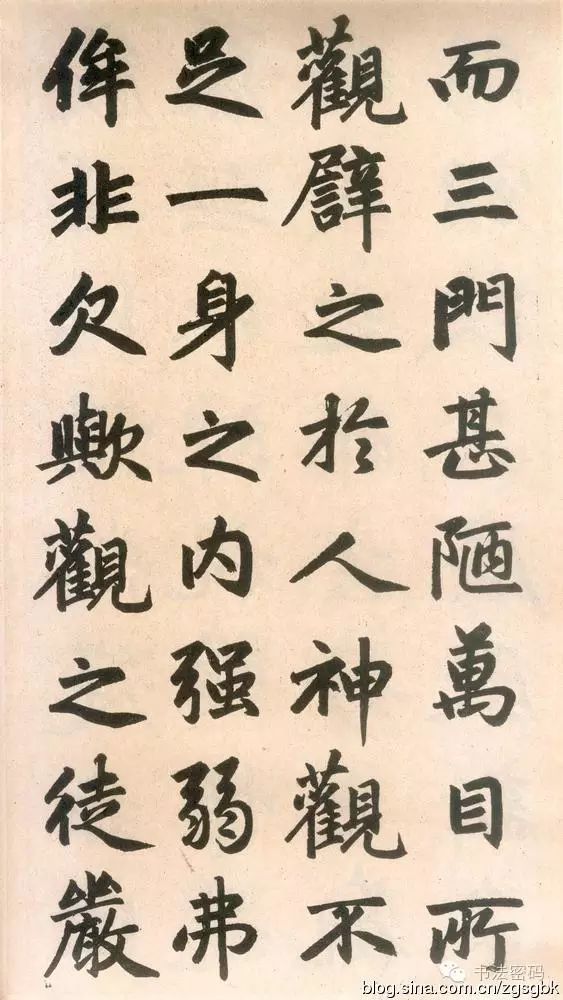 而三門甚陋萬目所
觀譬之於人神觀不
足一身之内强弱弗
侔非欠歟觀之徒嚴
书法密码
blog.sina.com.cn/zgsgbk